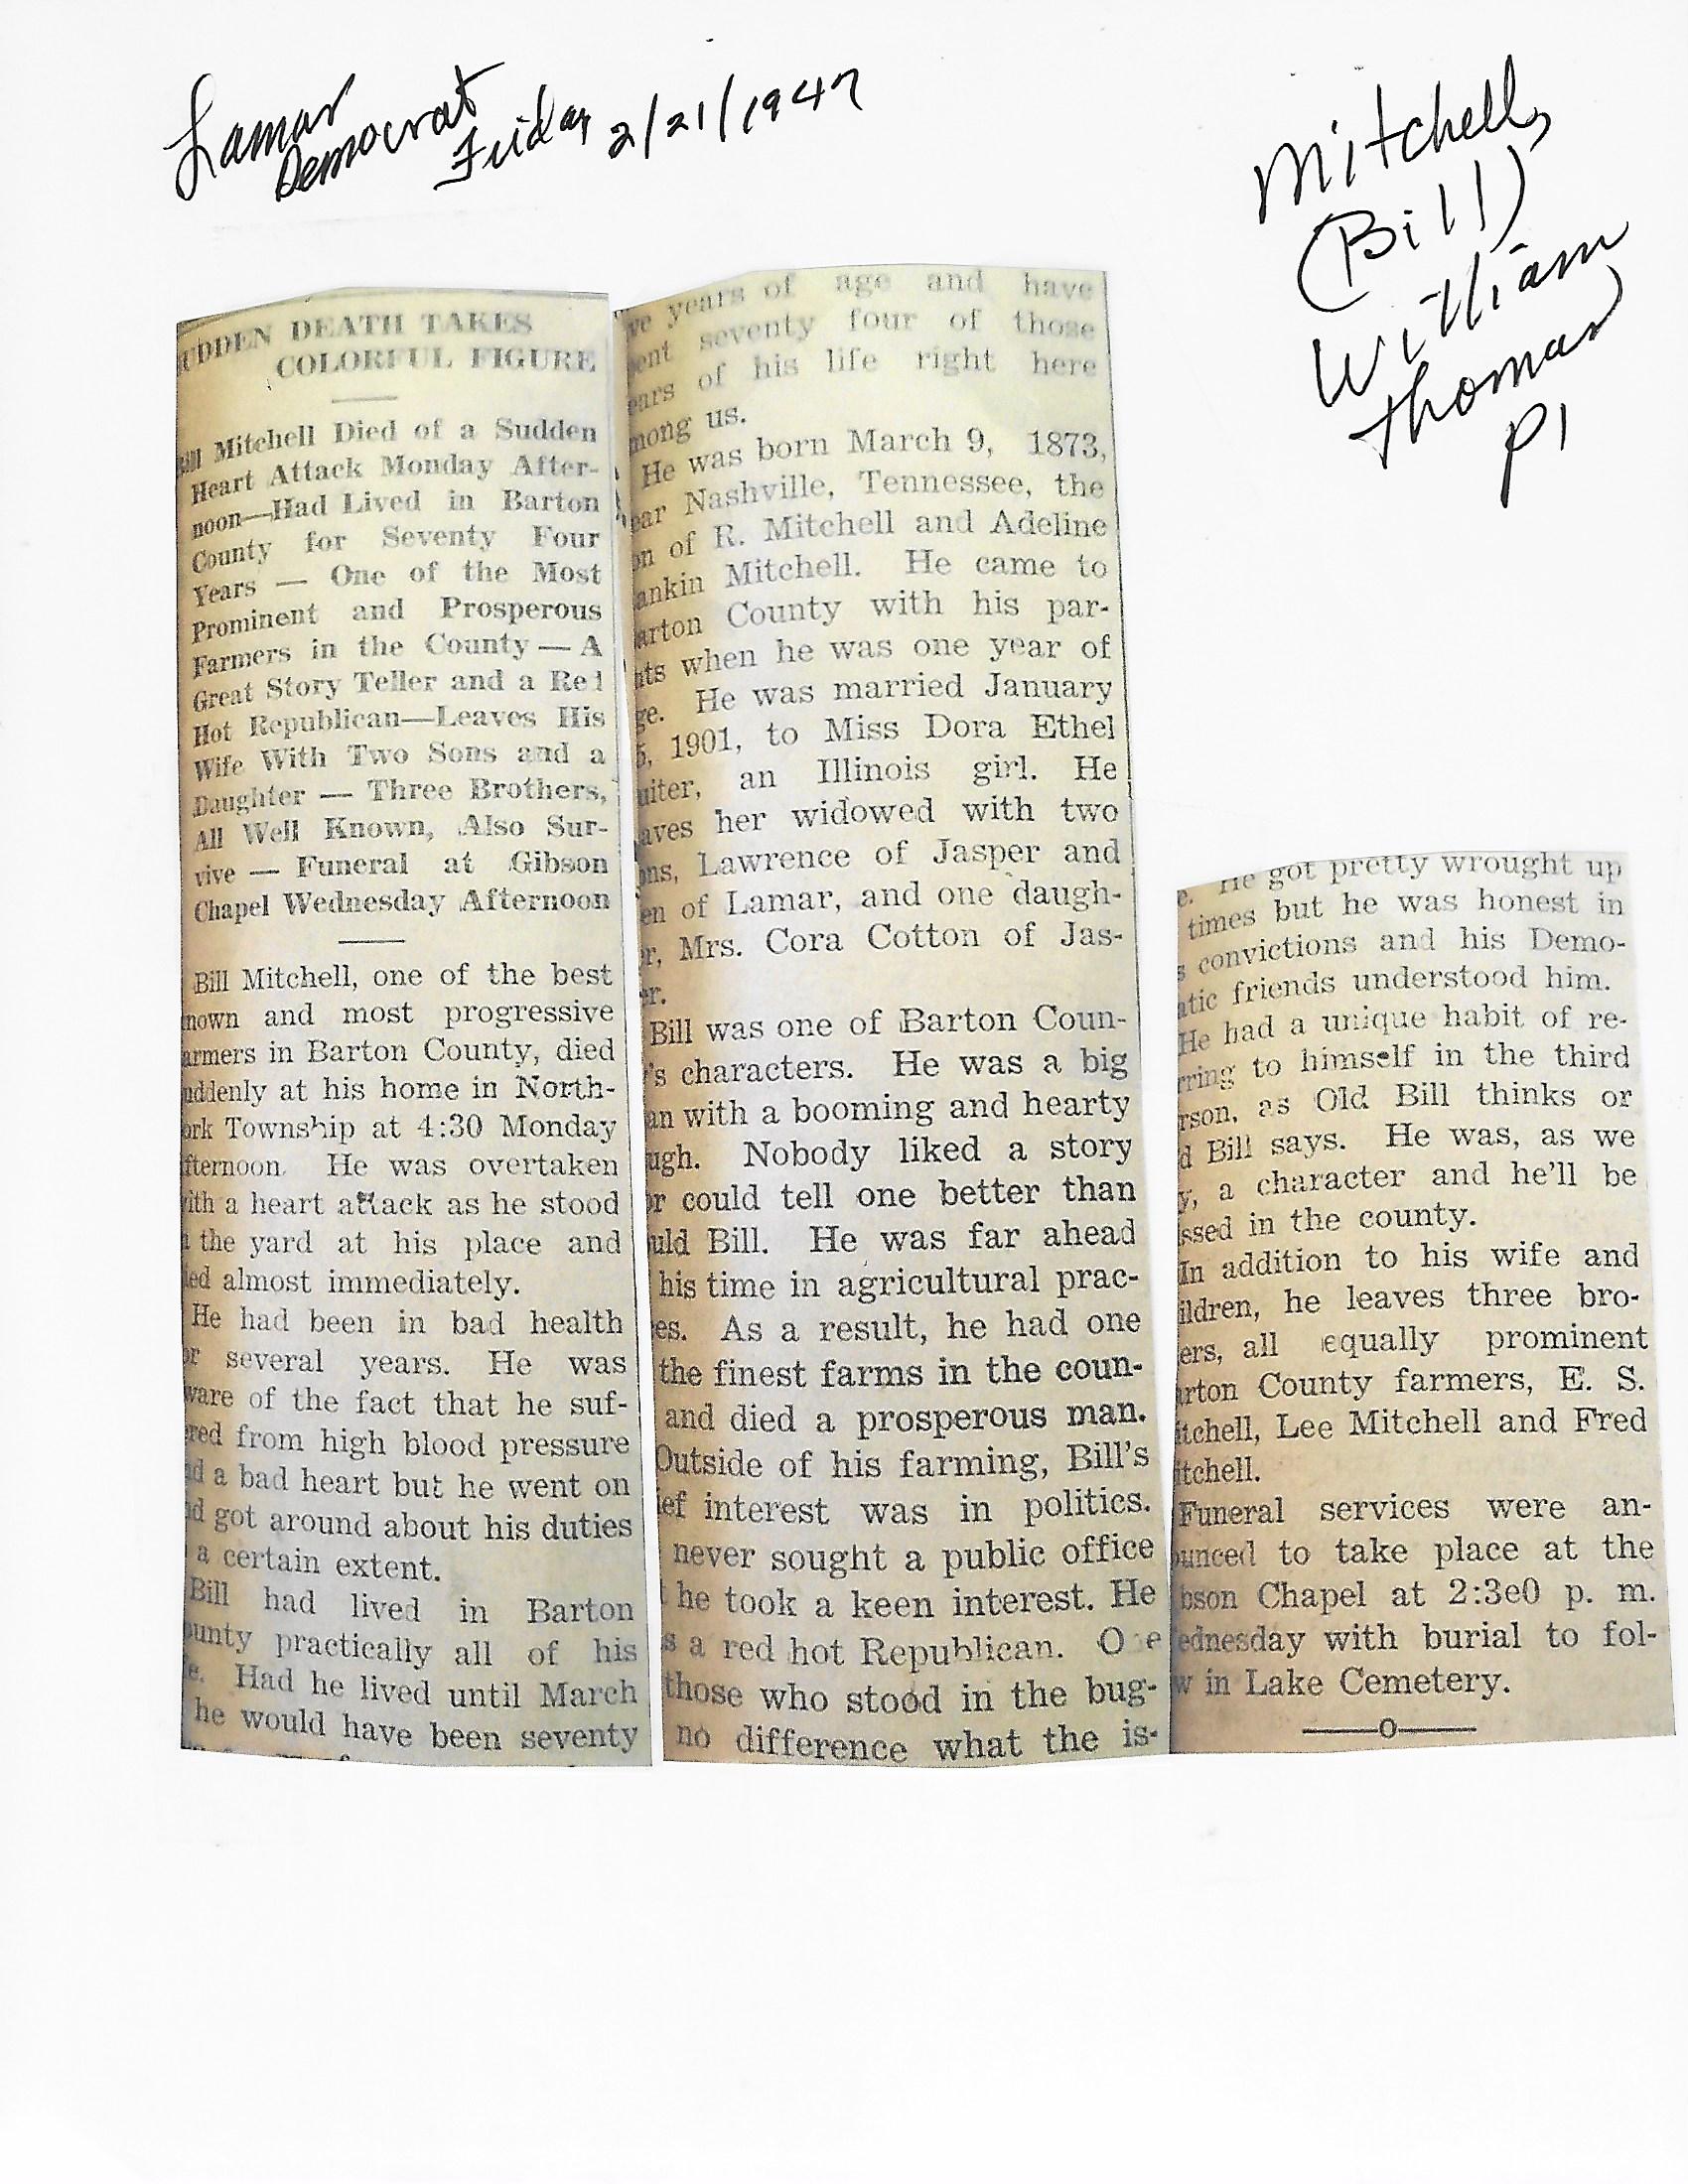 Lamar
Democrat
Friday 2/21/1947
Mitchell,
(Bill)
William
Thomas
P1
UDDEN DEATH TAKES
COLORFUL FIGURE
Bill Mitchell Died of a Sudden
Heart Attack Monday After-
noon—Had Lived in Barton
County for Seventy Four
Years — One of the Most
Prominent and Prosperous
Farmers in the County — A
Great Story Teller and a Red
Hot Republican—Leaves His
Wife With Two Sons and a
Daughter — Three Brothers,
All Well Known, Also Sur-
vive — Funeral at Gibson
Chapel Wednesday Afternoon
Bill Mitchell, one of the best
nown and most progressive
armers in Barton County, died
uddenly at his home in North-
ork Township at 4:30 Monday
fternoon. He was overtaken
ith a heart attack as he stood
the yard at his place and
ied almost immediately.
He had been in bad health
or several years. He was
ware of the fact that he suf-
red from high blood pressure
d a bad heart but he went on
d got around about his duties
a certain extent.
Bill had lived in Barton
ounty practically all of his
e. Had he lived until March
he would have been seventy
ve years of age and have
pent seventy four of those
ears of his life right here
mong us.
He was born March 9, 1873,
ear Nashville, Tennessee, the
on of R. Mitchell and Adeline
ankin Mitchell. He came to
arton County with his par-
nts when he was one year of
ge. He was married January
5, 1901, to Miss Dora Ethel
uiter, an Illinois girl. He
aves her widowed with two
ons, Lawrence of Jasper and
en of Lamar, and one daugh-
r, Mrs. Cora Cotton of Jas-
er.
Bill was one of Barton Coun-
's characters. He was a big
an with a booming and hearty
ugh. Nobody liked a story
or could tell one better than
uld Bill. He was far ahead
his time in agricultural prac-
es. As a result, he had one
the finest farms in the coun-
and died a prosperous man.
Outside of his farming, Bill's
ief interest was in politics.
never sought a public office
he took a keen interest. He
s a red hot Republican. O e
those who stood in the bug-
no difference what the is-
e. He got pretty wrought up
times but he was honest in
s convictions and his Demo-
atic friends understood him.
He had a unique habit of re-
rring to himself in the third
rson, as Old Bill thinks or
d Bill says. He was, as we
y, a character and he'll be
ssed in the county.
In addition to his wife and
ildren, he leaves three bro-
ers, all equally prominent
arton County farmers, E. S.
itchell, Lee Mitchell and Fred
itchell.
Funeral services were an-
ounced to take place at the
bson Chapel at 2:3e0 p. m.
ednesday with burial to fol-
w in Lake Cemetery.
——O——